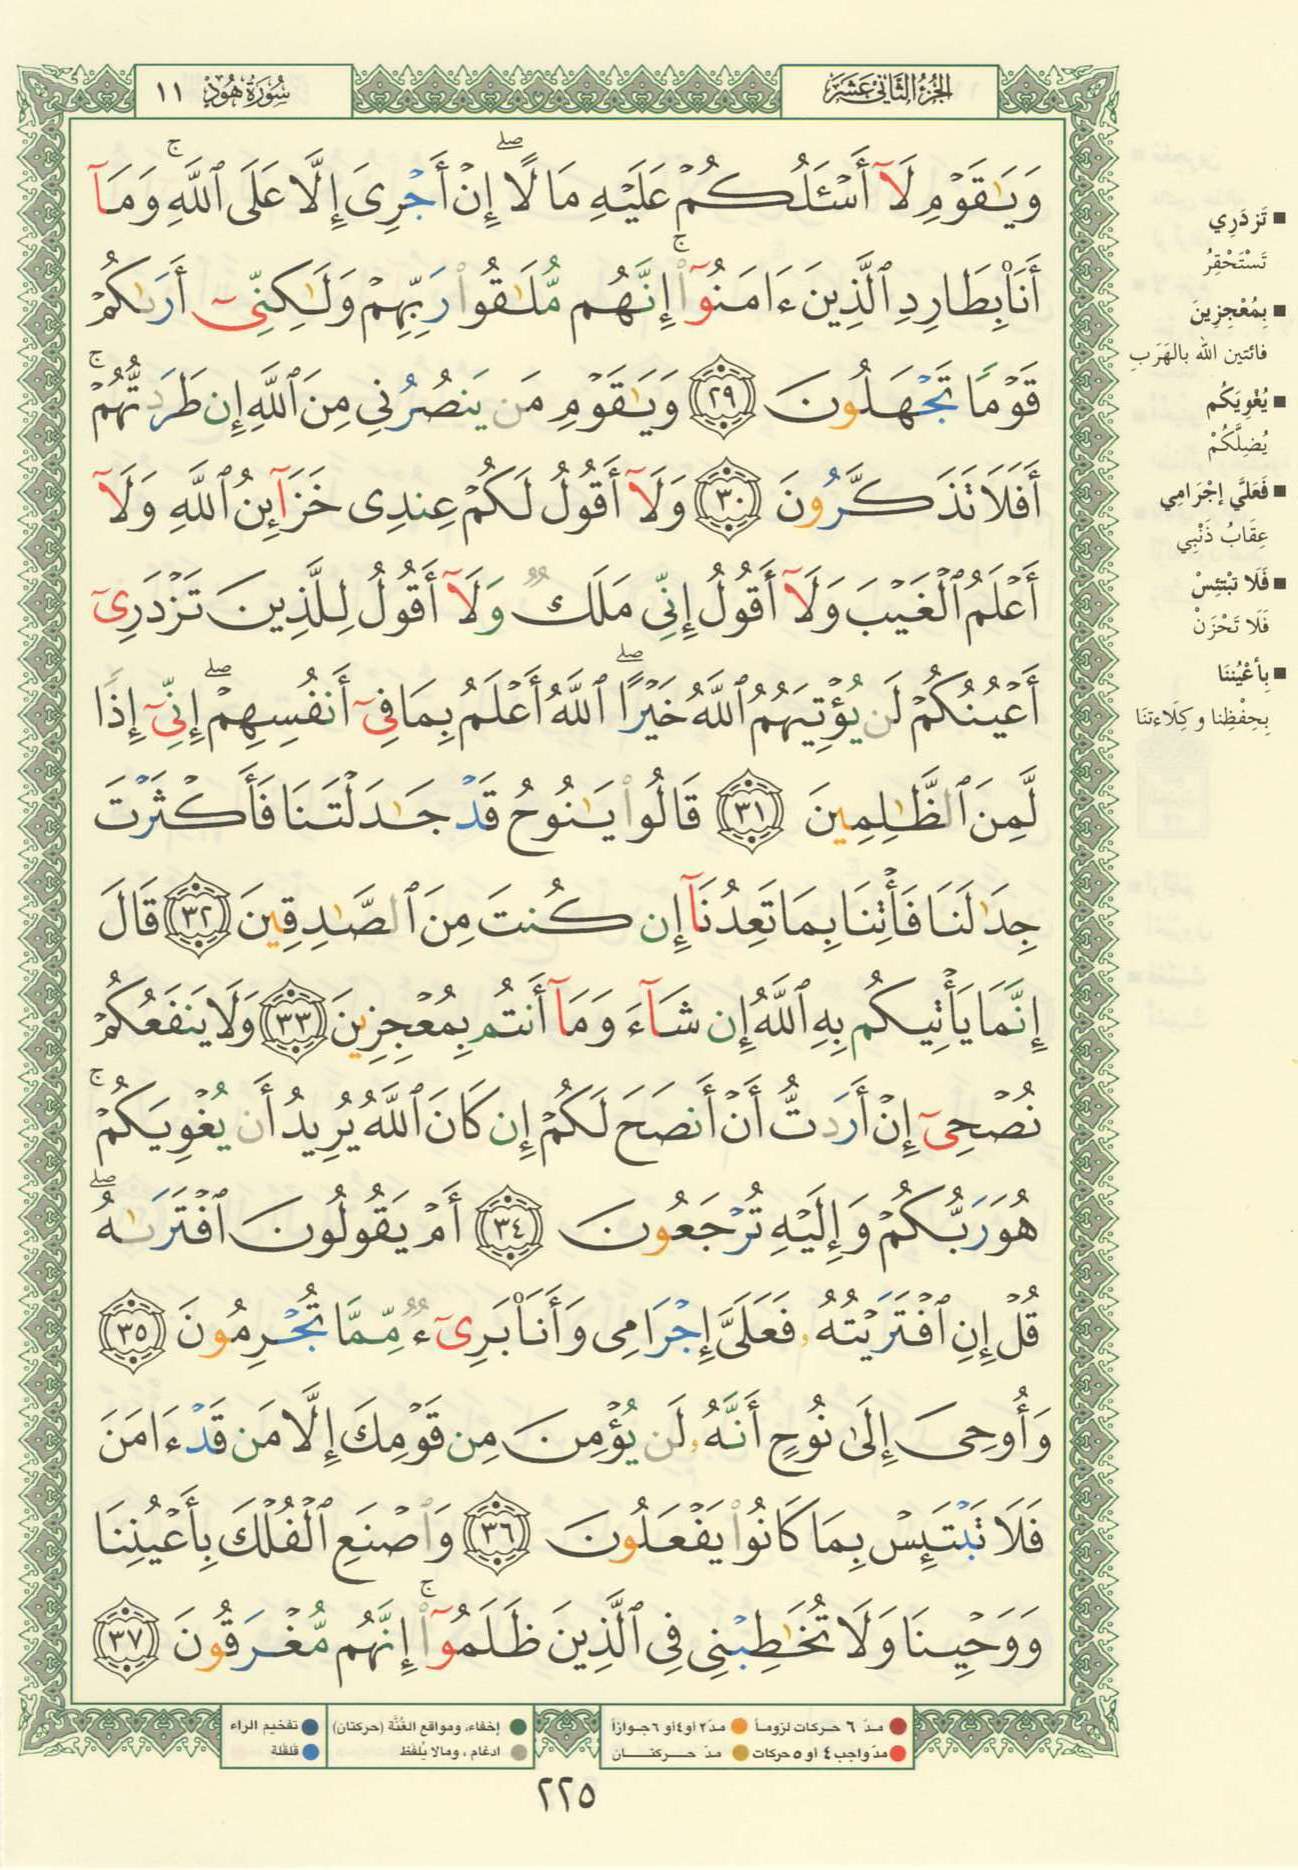 الجزء الثاني عشر
سورة هود ١١
وَيَٰقَوْمِ لَآ أَسْـَٔلُكُمْ عَلَيْهِ مَالًا ۖ إِنْ أَجْرِىَ إِلَّا عَلَى ٱللَّهِ ۚ وَمَآ
أَنَا۠ بِطَارِدِ ٱلَّذِينَ ءَامَنُوٓا۟ ۚ إِنَّهُم مُّلَٰقُوا۟ رَبِّهِمْ وَلَٰكِنِّىٓ أَرَىٰكُمْ
قَوْمًا تَجْهَلُونَ ٢٩ وَيَٰقَوْمِ مَن يَنصُرُنِى مِنَ ٱللَّهِ إِن طَرَدتُّهُمْ ۚ
أَفَلَا تَذَكَّرُونَ ٣٠ وَلَآ أَقُولُ لَكُمْ عِندِى خَزَآئِنُ ٱللَّهِ وَلَآ
أَعْلَمُ ٱلْغَيْبَ وَلَآ أَقُولُ إِنِّى مَلَكٌ وَلَآ أَقُولُ لِلَّذِينَ تَزْدَرِىٓ
أَعْيُنُكُمْ لَن يُؤْتِيَهُمُ ٱللَّهُ خَيْرًا ۖ ٱللَّهُ أَعْلَمُ بِمَا فِىٓ أَنفُسِهِمْ ۖ إِنِّىٓ إِذًا
لَّمِنَ ٱلظَّٰلِمِينَ ٣١ قَالُوا۟ يَٰنُوحُ قَدْ جَٰدَلْتَنَا فَأَكْثَرْتَ
جِدَٰلَنَا فَأْتِنَا بِمَا تَعِدُنَآ إِن كُنتَ مِنَ ٱلصَّٰدِقِينَ ٣٢ قَالَ
إِنَّمَا يَأْتِيكُم بِهِ ٱللَّهُ إِن شَآءَ وَمَآ أَنتُم بِمُعْجِزِينَ ٣٣ وَلَا يَنفَعُكُمْ
نُصْحِىٓ إِنْ أَرَدتُّ أَنْ أَنصَحَ لَكُمْ إِن كَانَ ٱللَّهُ يُرِيدُ أَن يُغْوِيَكُمْ ۚ
هُوَ رَبُّكُمْ وَإِلَيْهِ تُرْجَعُونَ ٣٤ أَمْ يَقُولُونَ ٱفْتَرَىٰهُ ۖ
قُلْ إِنِ ٱفْتَرَيْتُهُۥ فَعَلَىَّ إِجْرَامِى وَأَنَا۠ بَرِىٓءٌ مِّمَّا تُجْرِمُونَ ٣٥
وَأُوحِىَ إِلَىٰ نُوحٍ أَنَّهُۥ لَن يُؤْمِنَ مِن قَوْمِكَ إِلَّا مَن قَدْ ءَامَنَ
فَلَا تَبْتَئِسْ بِمَا كَانُوا۟ يَفْعَلُونَ ٣٦ وَٱصْنَعِ ٱلْفُلْكَ بِأَعْيُنِنَا
وَوَحْيِنَا وَلَا تُخَٰطِبْنِى فِى ٱلَّذِينَ ظَلَمُوٓا۟ ۚ إِنَّهُم مُّغْرَقُونَ ٣٧
■ تَزدَرِي
تَسْتَحْقِرُ
■ بِمُعْجِزِينَ
فائتين الله بالهَرَبِ
■ يُغْوِيَكُم
يُضِلَّكُمْ
■ فَعَلَيَّ إجْرَامِي
عِقَابُ ذَنْبِي
■ فَلَا تبْتَئِسْ
فَلَا تَحْزَنْ
■ بِأعْيُننَا
بِحِفْظِنا و كِلَاءتنَا
مدّ ٦ حركات لزوماً مدّ ٢ أو ٤ أو ٦ جوازاً
مدّ واجب ٤ أو ٥ حركات مدّ حركتان
إخفاء، ومواقع الغُنَّة (حركتان) تفخيم الراء
ادغام ، ومالا يُلفَظ قلقلة
٢٢٥